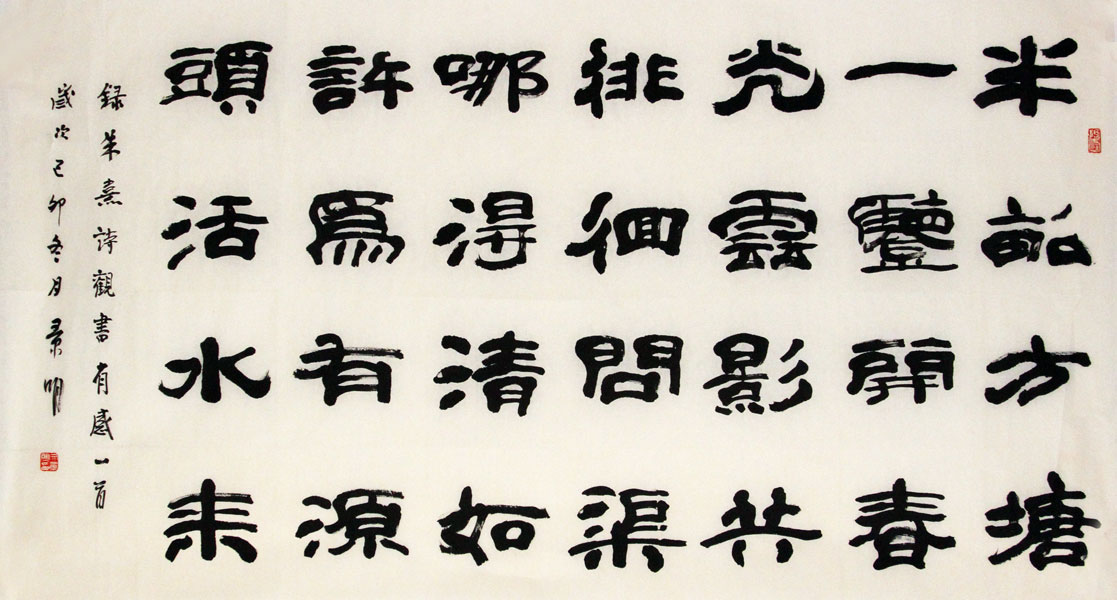 半畝方塘
一鑒開春
光雲影共
徘徊問渠
哪得清如
許爲有源
頭活水来
録朱熹詩觀書有感一首
歲次己卯冬月景明